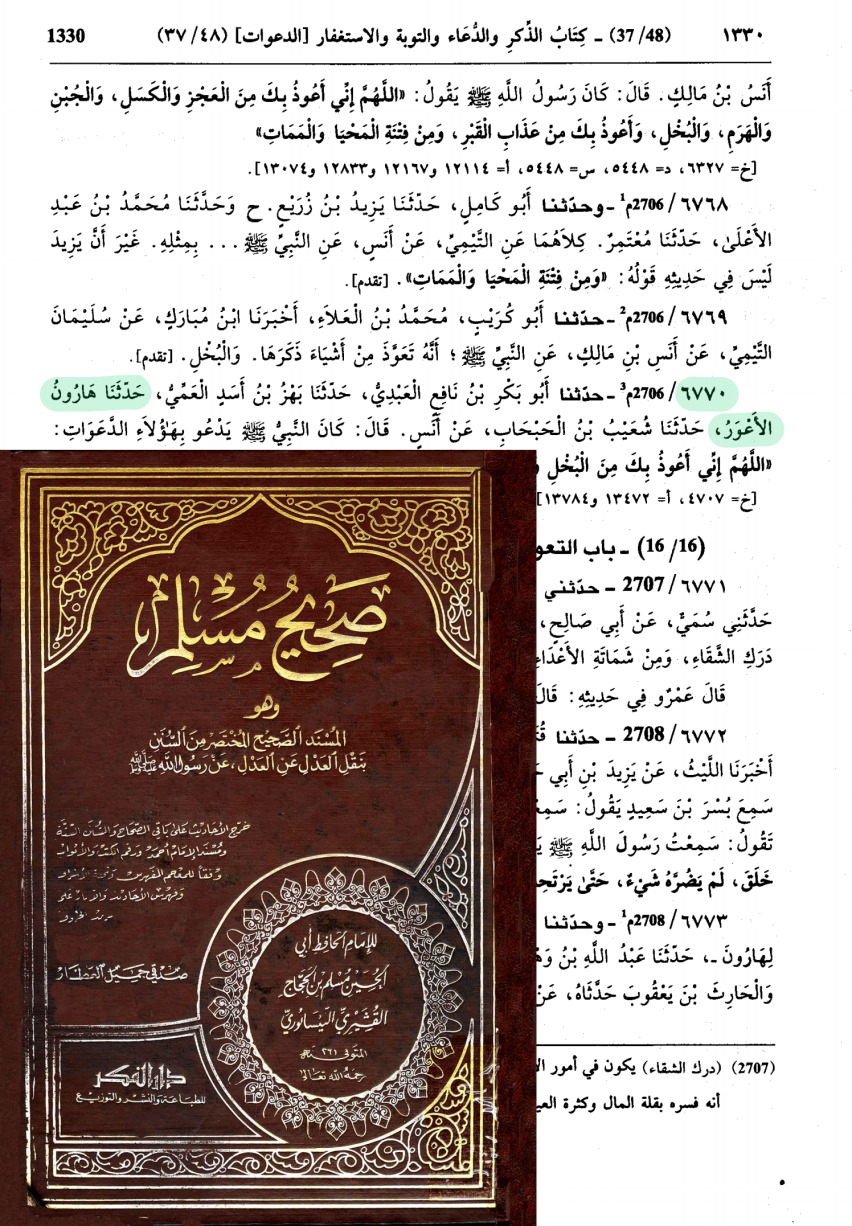 ١٣٣٠ (37/48) ـ كِتَابُ الذِّكرِ والدُّعَاء والتوبة والاستغفار [الدعوات] (٣٧/٤٨) 1330
أَنَسُ بْنُ مَالِكٍ. قَالَ: كَانَ رَسُولُ اللَّهِ ﷺ يَقُولُ: «اللَّهُمَّ إِنِّي أَعُوذُ بِكَ مِنَ الْعَجْزِ وَالْكَسَلِ، وَالْجُبْنِ
وَالْهَرَمِ، وَالْبُخْلِ، وَأَعُوذُ بِكَ مِنْ عَذَابِ الْقَبْرِ، وَمِنْ فِتْنَةِ الْمَحْيَا وَالْمَمَاتِ»
[خ= ٦٣٢٧، د= ٥٤٤٨، س= ٥٤٤٨، أ= ١٢١١٤ و١٢١٦٧ و١٢٨٣٣ و١٣٠٧٤].
٦٧٦٨/ 2706م¹ -وحدّثنا أَبُو كَامِلٍ، حَدَّثَنَا يَزِيدُ بْنُ زُرَيْعٍ. ح وَحَدَّثَنَا مُحَمَّدُ بْنُ عَبْدِ
الأَعْلَى، حَدَّثَنَا مُعْتَمِرٌ. كِلاَهُمَا عَنِ التَّيْمِيِّ، عَنْ أَنَسٍ، عَنِ النَّبِيِّ ﷺ ... بِمِثْلِهِ. غَيْرَ أَنَّ يَزِيدَ
لَيْسَ فِي حَدِيثِهِ قَوْلُهُ: «وَمِنْ فِتْنَةِ الْمَحْيَا وَالْمَمَاتِ». [تقدم].
٦٧٦٩/ 2706م² -حدّثنا أَبُو كُرَيْبٍ، مُحَمَّدُ بْنُ الْعَلاَءِ، أَخْبَرَنَا ابْنُ مُبَارَكٍ، عَنْ سُلَيْمَانَ
التَّيْمِيِّ، عَنْ أَنَسِ بْنِ مَالِكٍ، عَنِ النَّبِيِّ ﷺ؛ أَنَّهُ تَعَوَّذَ مِنْ أَشْيَاءَ ذَكَرَهَا. وَالْبُخْلِ. [تقدم].
٦٧٧٠/ 2706م³ -حدّثنا أَبُو بَكْرِ بْنُ نَافِعٍ الْعَبْدِيُّ، حَدَّثَنَا بَهْزُ بْنُ أَسَدٍ الْعَمِّيُّ، حَدَّثَنَا هَارُونُ
الأَعْوَرُ، حَدَّثَنَا شُعَيْبُ بْنُ الْحَبْحَابِ، عَنْ أَنَسٍ. قَالَ: كَانَ النَّبِيُّ ﷺ يَدْعُو بِهَؤُلاَءِ الدَّعَوَاتِ:
«اللَّهُمَّ إِنِّي أَعُوذُ بِكَ مِنَ الْبُخْلِ
[خ= ٤٧٠٧، أ= ١٣٤٧٢ و١٣٧٨٤]
(16/16) ـ باب التعو
٦٧٧١/ 2707 - حدّثني
حَدَّثَنِي سُمَيٌّ، عَنْ أَبِي صَالِحٍ،
دَرَكِ الشَّقَاءِ، وَمِنْ شَمَاتَةِ الأَعْدَاءِ
قَالَ عَمْرٌو فِي حَدِيثِهِ: قَالَ
٦٧٧٢/ 2708 - حدّثنا
أَخْبَرَنَا اللَّيْثُ، عَنْ يَزِيدَ بْنِ أَبِي
سَمِعَ بُسْرَ بْنَ سَعِيدٍ يَقُولُ: سَمِعْ
تَقُولُ: سَمِعْتُ رَسُولَ اللَّهِ ﷺ
خَلَقَ، لَمْ يَضُرَّهُ شَيْءٌ، حَتَّى يَرْتَحِ
٦٧٧٣/ 2708م¹ - وحدّثنا
لِهَارُونَ -، حَدَّثَنَا عَبْدُ اللَّهِ بْنُ وَهْ
وَالْحَارِثَ بْنَ يَعْقُوبَ حَدَّثَاهُ، عَنْ
(2707) (درك الشقاء) يكون في أمور
أنه فسره بقلة المال وكثرة العي
صَحِيحُ مُسْلِمٍ
وهو
المُسْنَد الصَّحِيح المُخْتَصَر مِنَ السُّنَنِ
بِنَقْلِ العَدْلِ عَنِ العَدْلِ، عَنْ رَسُولِ اللهِ ﷺ
خرج الأحاديث على باقي الصحاح والسنن الستة
ومسند الإمام أحمد ورقم الكتب والأبواب
وفقاً للمعجم المفهرس
صدقي جميل العطار
للإمام الحافظ أبي
الحسين مسلم بن الحجاج
القشيري النيسابوري
المتوفى ٢٦١ هـ
رحمه الله تعالى
دار الفكر
للطباعة والنشر والتوزيع